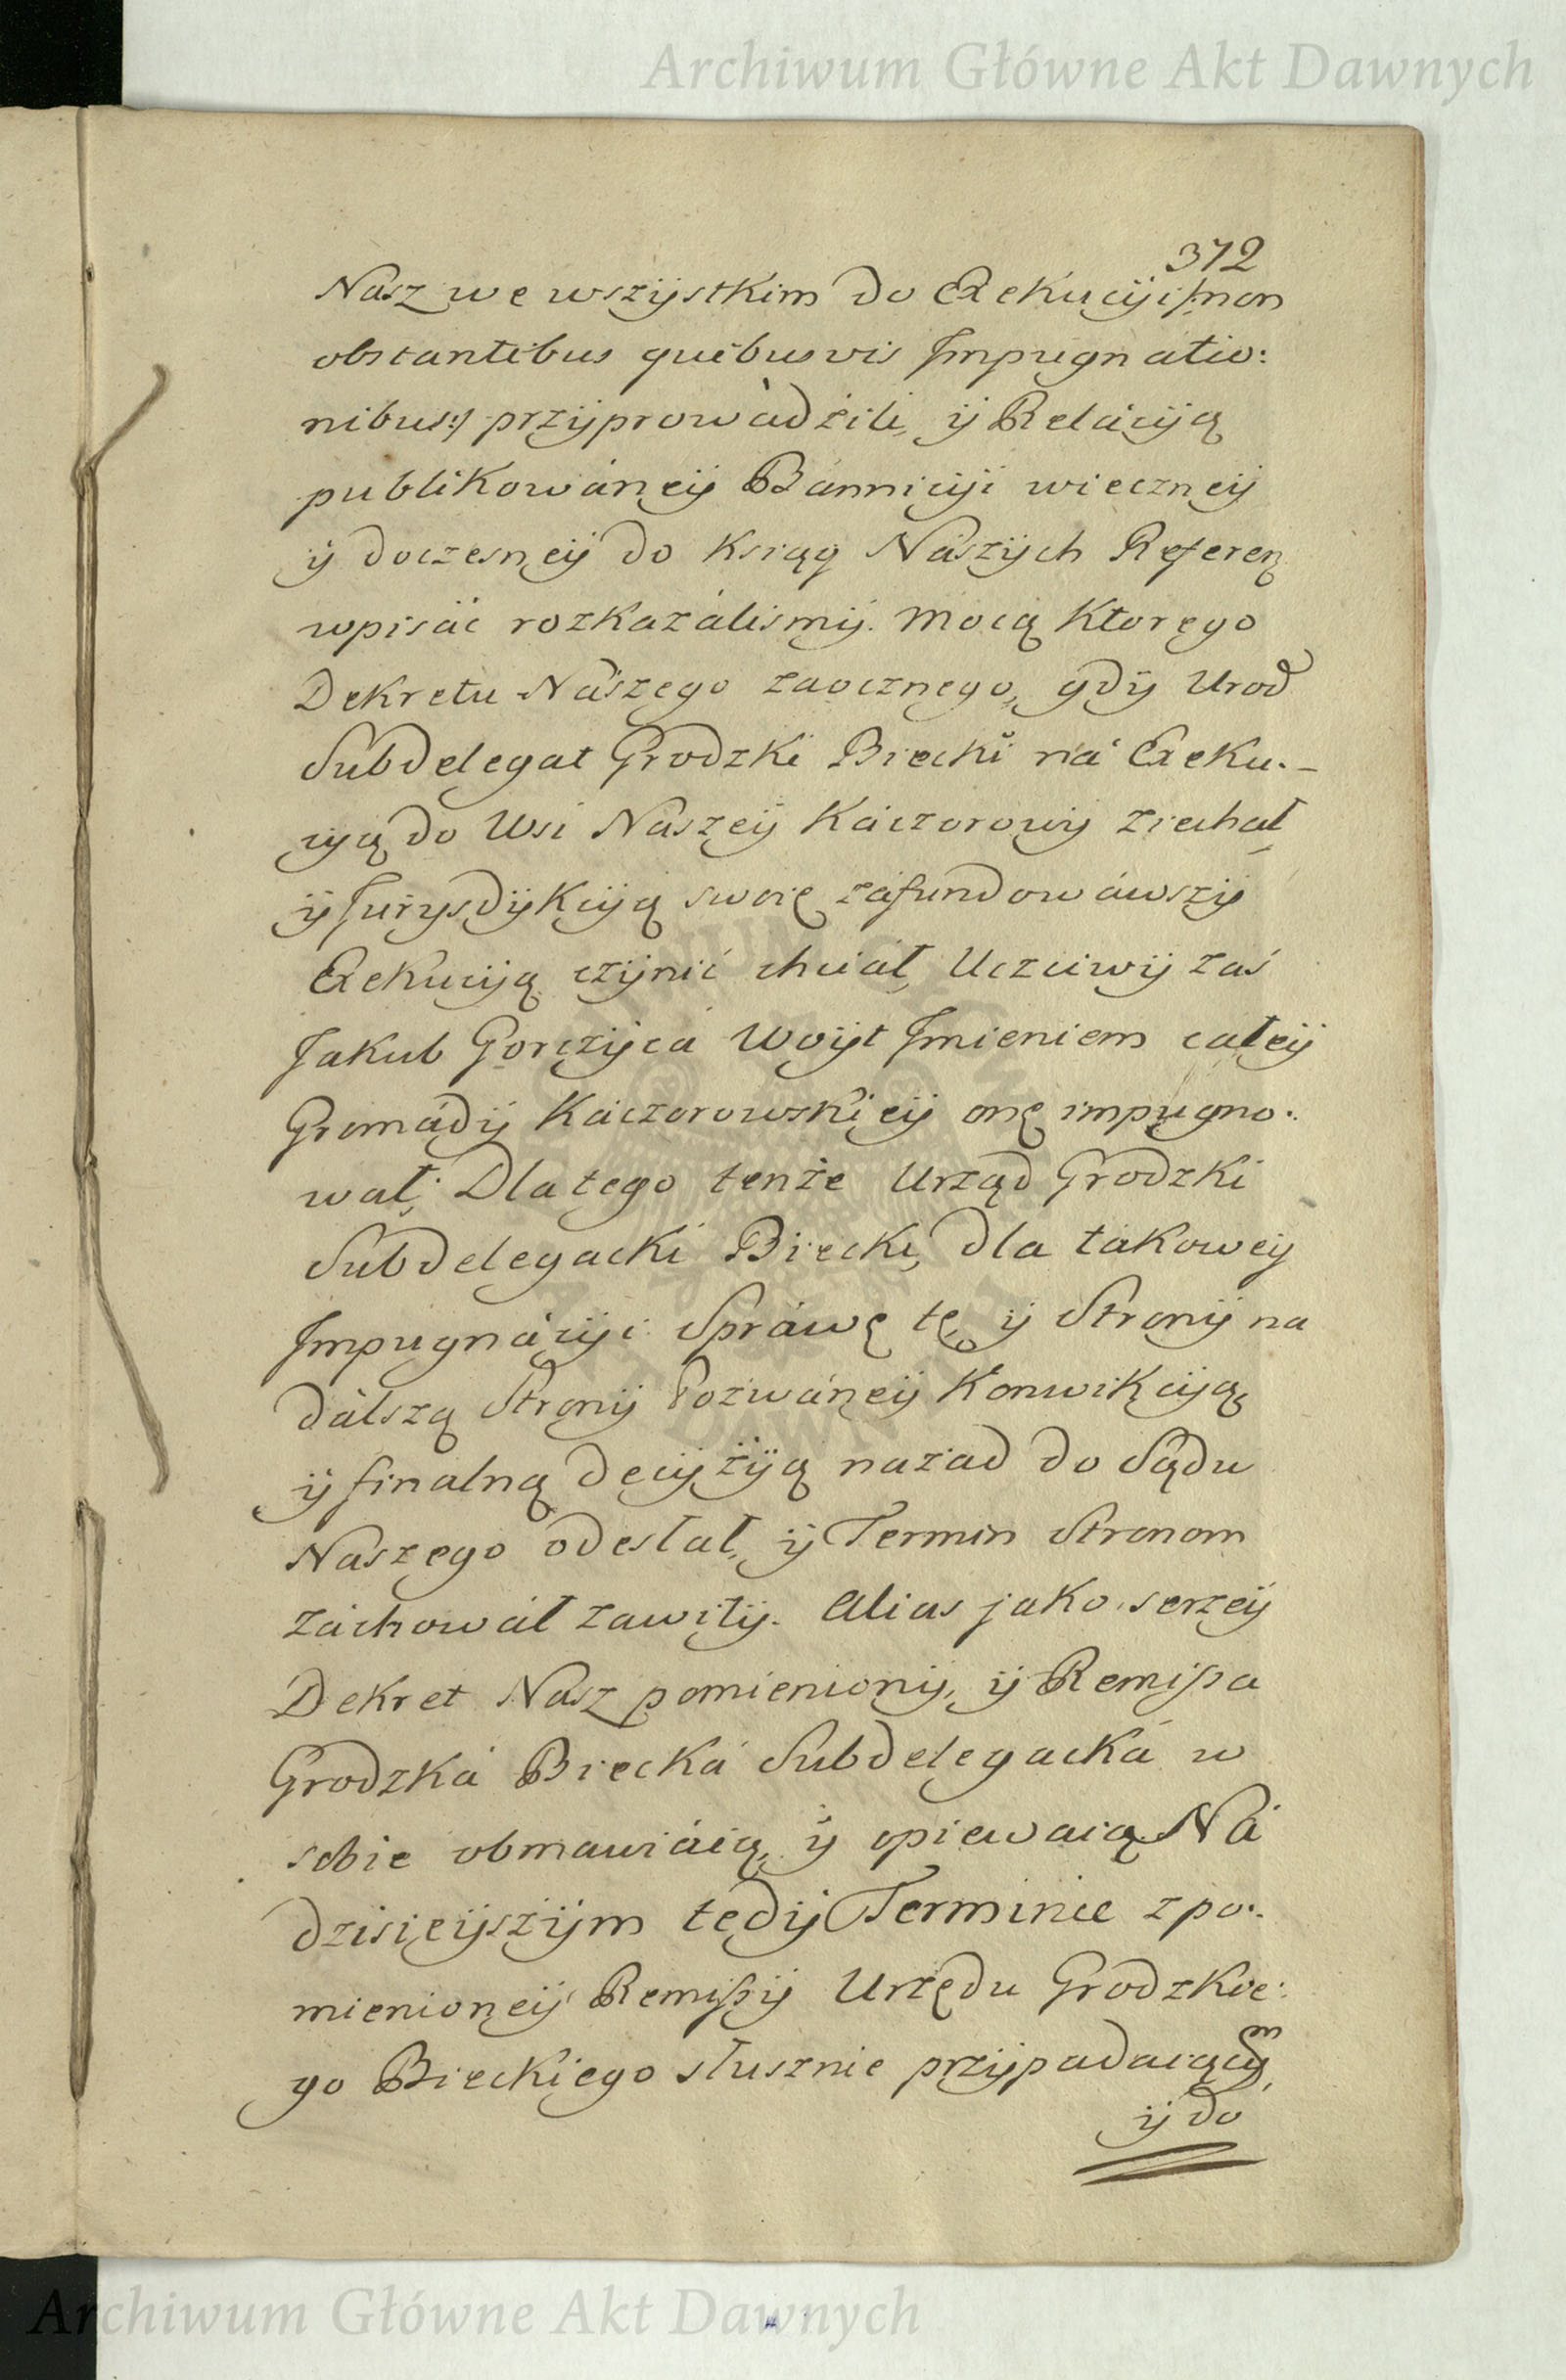 Archiwum Główne Akt Dawnych
372
Nász we wszÿstkim do Exekucÿi /:non
obstantibus quibusvis Impugnatio:
nibus:/ przÿprowádźili, ÿ Relácÿą
publikowánęÿ Bánnicÿi wiecznęÿ
ÿ doczesnęÿ do Ksiąg Nászÿch Referen
wpisáć rozkazálismÿ. Mocą Ktorego
Dekretu Nászego zaocznego, gdÿ Urod
Subdelegat Grodzki Biecki ná Exeku.-
cÿą do Wsi Nászeÿ Káczorowÿ ziechał,
ÿ Jurysdÿkcÿą swoię záfundowáwszÿ
Exekucÿą czÿnić chciáł, Uczciwÿ zaś
Jakub Gorczÿcá Woÿt Jmieniem całeÿ
Gromádÿ Káczorowskieÿ onę impugno:
wał; Dlatego tenże Urząd Grodzki
Subdelegacki Biecki, dla tákoweÿ
Impugnácÿi Spráwę tę, ÿ Stronÿ na
dálszą Stronÿ Pozwánęÿ Konwikcÿą,
ÿ finalną decÿzÿą nazad do Sądu
Nászego odesłał, ÿ Termin Stronom
záchowáł zawitÿ. Alias jako serzeÿ
Dekret Nász pomienionÿ, ÿ Remissa
Grodzká Biecká Subdelegacká w
sobie obmawiáią, ÿ opiewaią. Ná
dzisieÿszÿm tedÿ Terminie z po:
mienioneÿ Remissÿ Urzędu Grodzkie:
go Bieckiego słusznie przÿpadaiącÿm,
ÿ do
Archiwum Główne Akt Dawnych